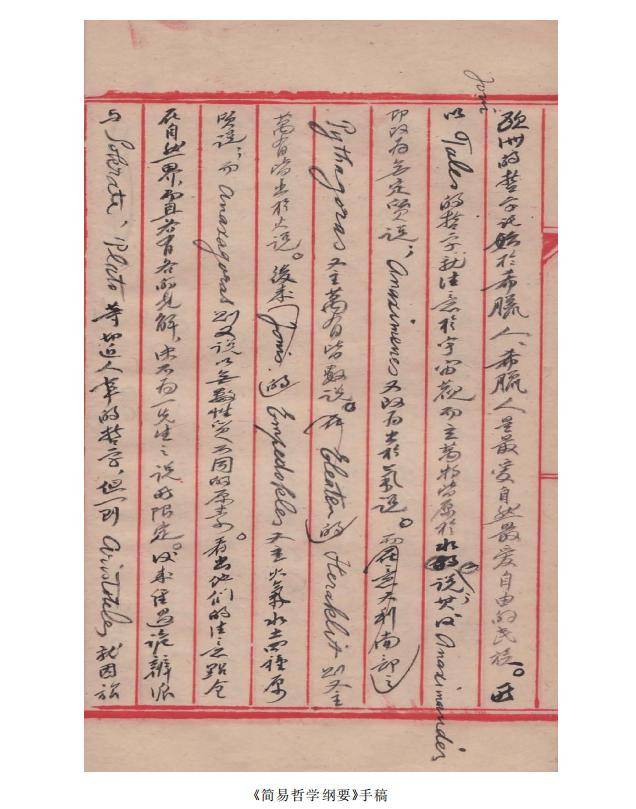 Joni
欧洲的哲学托始於希臘人、希臘人是最爱自然最爱自由的民族。所
以Tales的哲学就注意於宇宙观而主萬物皆原於水的说；其後Anaximander
即改为無定質说；Anaximenes又改为出於氣说。而在意大利南部之
Pythagoras又主萬有皆数说。在Eleaten的Heraklit则又主
萬有皆出於火说。後来Jonis的Empedokles又主火氣水土四種原
質说；而Anaxagoras则又说以無数性質不同的原素。看出他们的注意點全
在自然界，而且各有各的見解，决不为一先生之说所限定。後来经过诡辨派
与Sokrates，Plato等切近人事的哲学，但一到Aristoteles就因
《简易哲学纲要》手稿